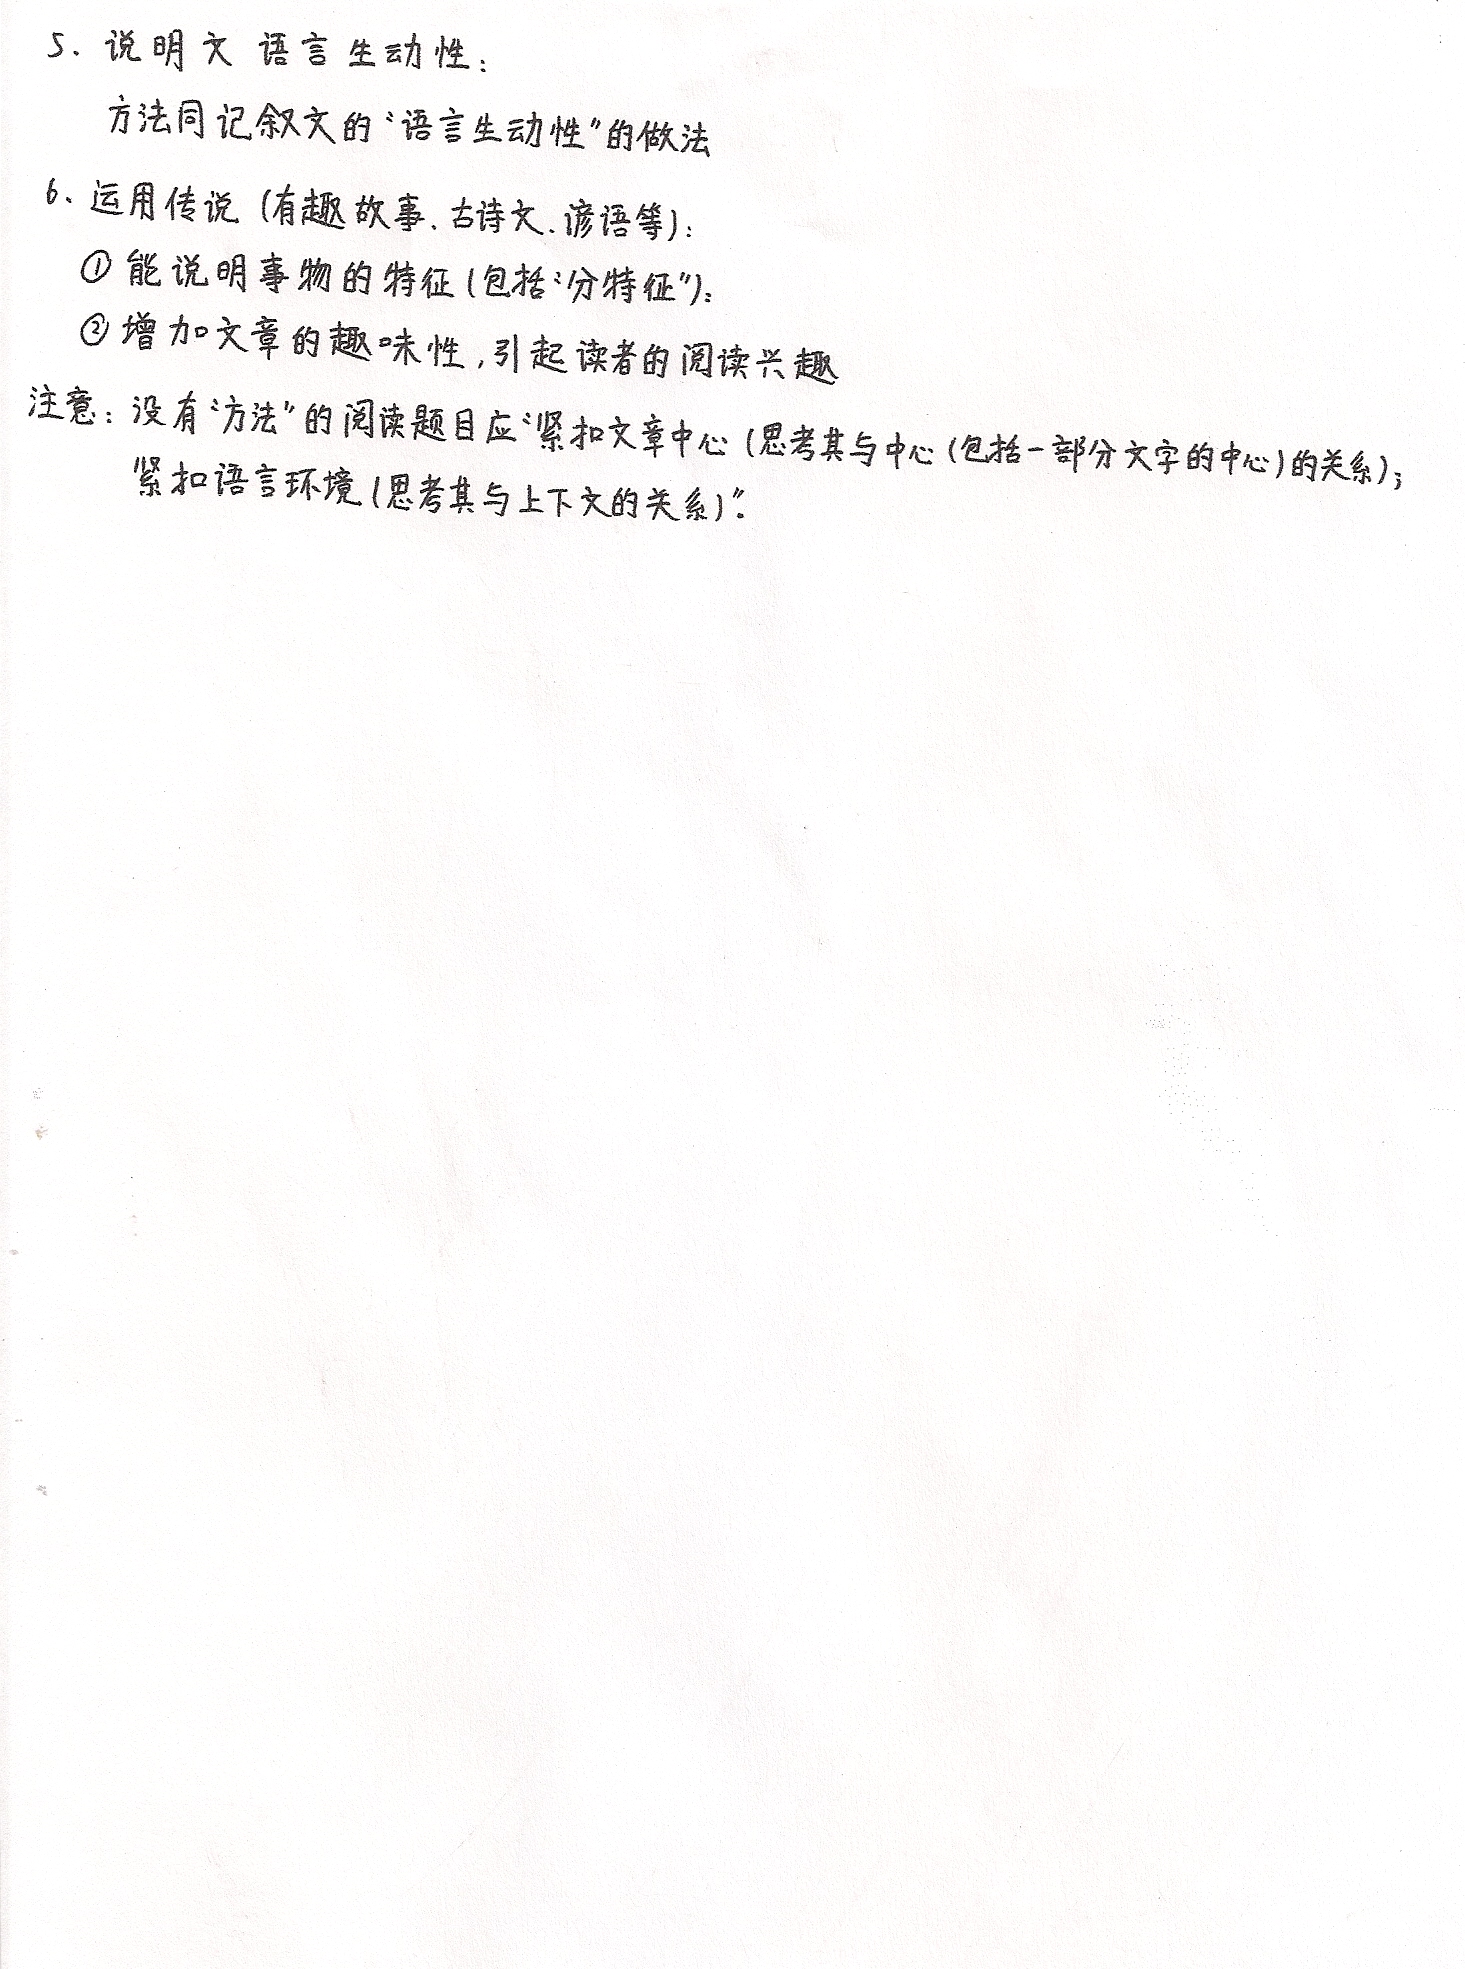 5. 说明文语言生动性：
方法同记叙文的“语言生动性”的做法
6、运用传说（有趣故事、古诗文、谚语等）：
① 能说明事物的特征（包括“分特征”）；
② 增加文章的趣味性，引起读者的阅读兴趣
注意：没有“方法”的阅读题目应“紧扣文章中心（思考其与中心（包括一部分文字的中心）的关系）；
紧扣语言环境（思考其与上下文的关系）”。